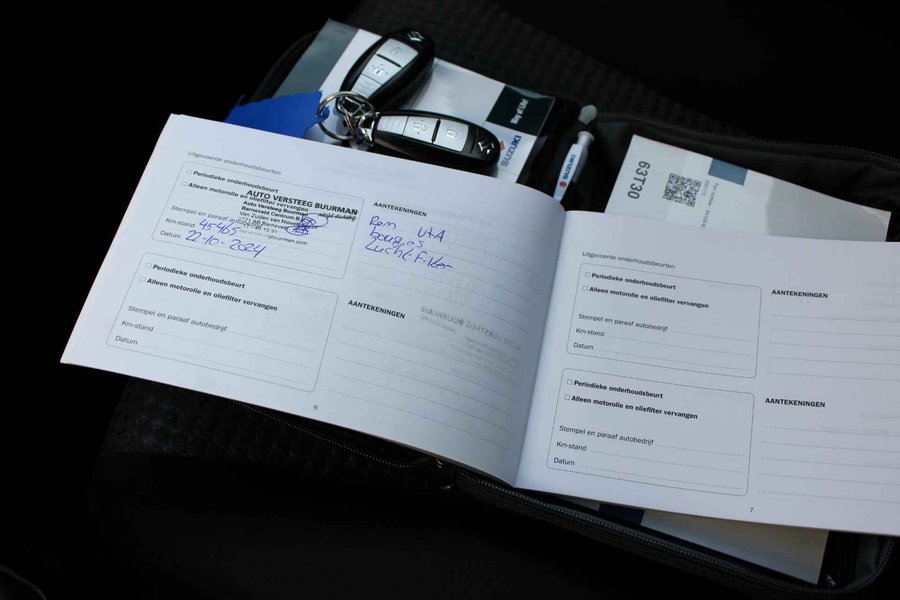 Way of Life!
SUZUKI
SUZUKI
63T30
Uitgevoerde onderhoudsbeurten
Periodieke onderhoudsbeurt
Alleen motorolie en oliefilter vervangen
AUTO VERSTEEG BUURMAN
Auto Versteeg Buurman
Barneveld Centrum B.V.
Van Zuijlen van Nievelt
Barneveld
Stempel en paraaf autobedrijf
Km-stand 45465
Datum 22-10-2024
AANTEKENINGEN
Rem
bougies
Luchtfilter
Periodieke onderhoudsbeurt
Alleen motorolie en oliefilter vervangen
Stempel en paraaf autobedrijf
Km-stand
Datum
AANTEKENINGEN
6
Uitgevoerde onderhoudsbeurten
Periodieke onderhoudsbeurt
Alleen motorolie en oliefilter vervangen
Stempel en paraaf autobedrijf
Km-stand
Datum
AANTEKENINGEN
Periodieke onderhoudsbeurt
Alleen motorolie en oliefilter vervangen
Stempel en paraaf autobedrijf
Km-stand
Datum
AANTEKENINGEN
7